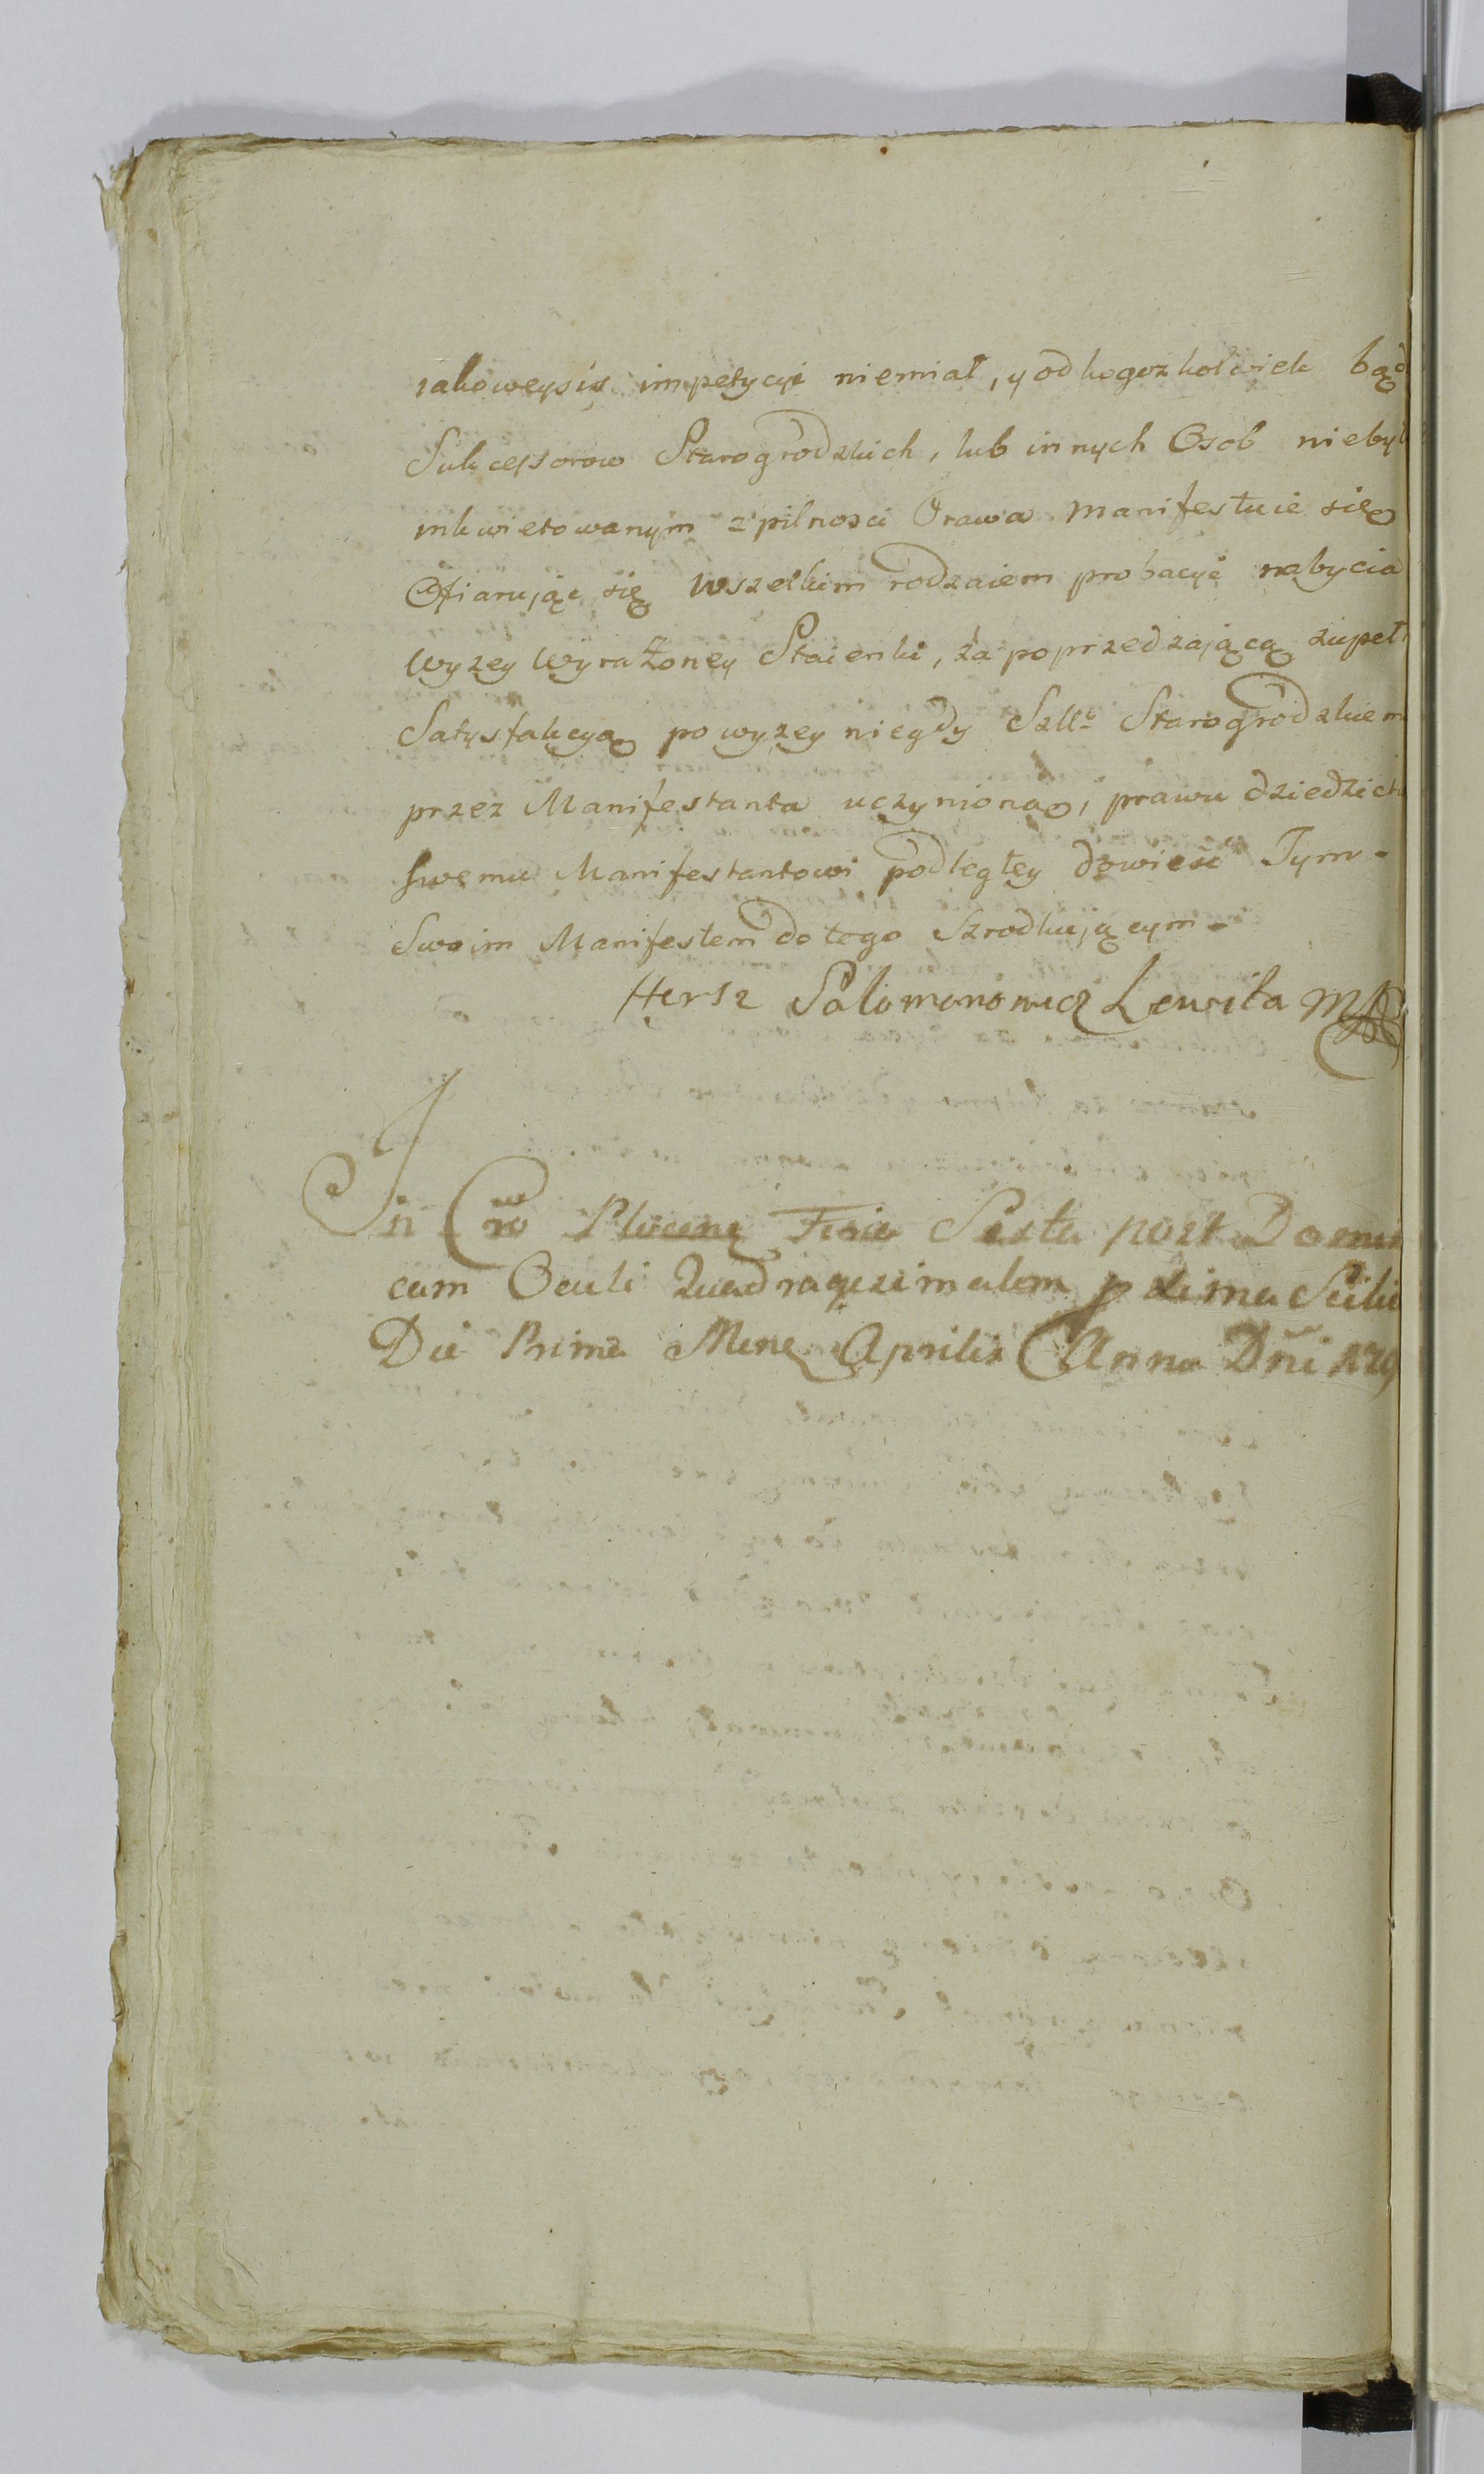 iakoweysis impetycyi niemiał, y od kogozkolwiek bąd
Sukcessorow Starogrodzkich, lub innych Osob nieby
inkwietowanym z pilnosci Prawa Manifestuie się
Ofiarując się wszelkim rodzaiem probacyi nabycia
wyzey wyrażoney Staienki, za poprzedzającą zupeł
Satysfakcyą powyzey niegdy Szlt. Starogrodzkiem
przez Manifestanta uczynioną, prawu dziedzict
swemu Manifestantowi podległey dowieść Tym -
Swoim Manifestem do tego Szrodkującym -
Hersz Salomonowicz Lewita
In Cro Plocen Feria Sexta post Domini
cam Oculi Quadragesimalem pxima Scili
Die Prima Mens Aprilis Anno Dni 179